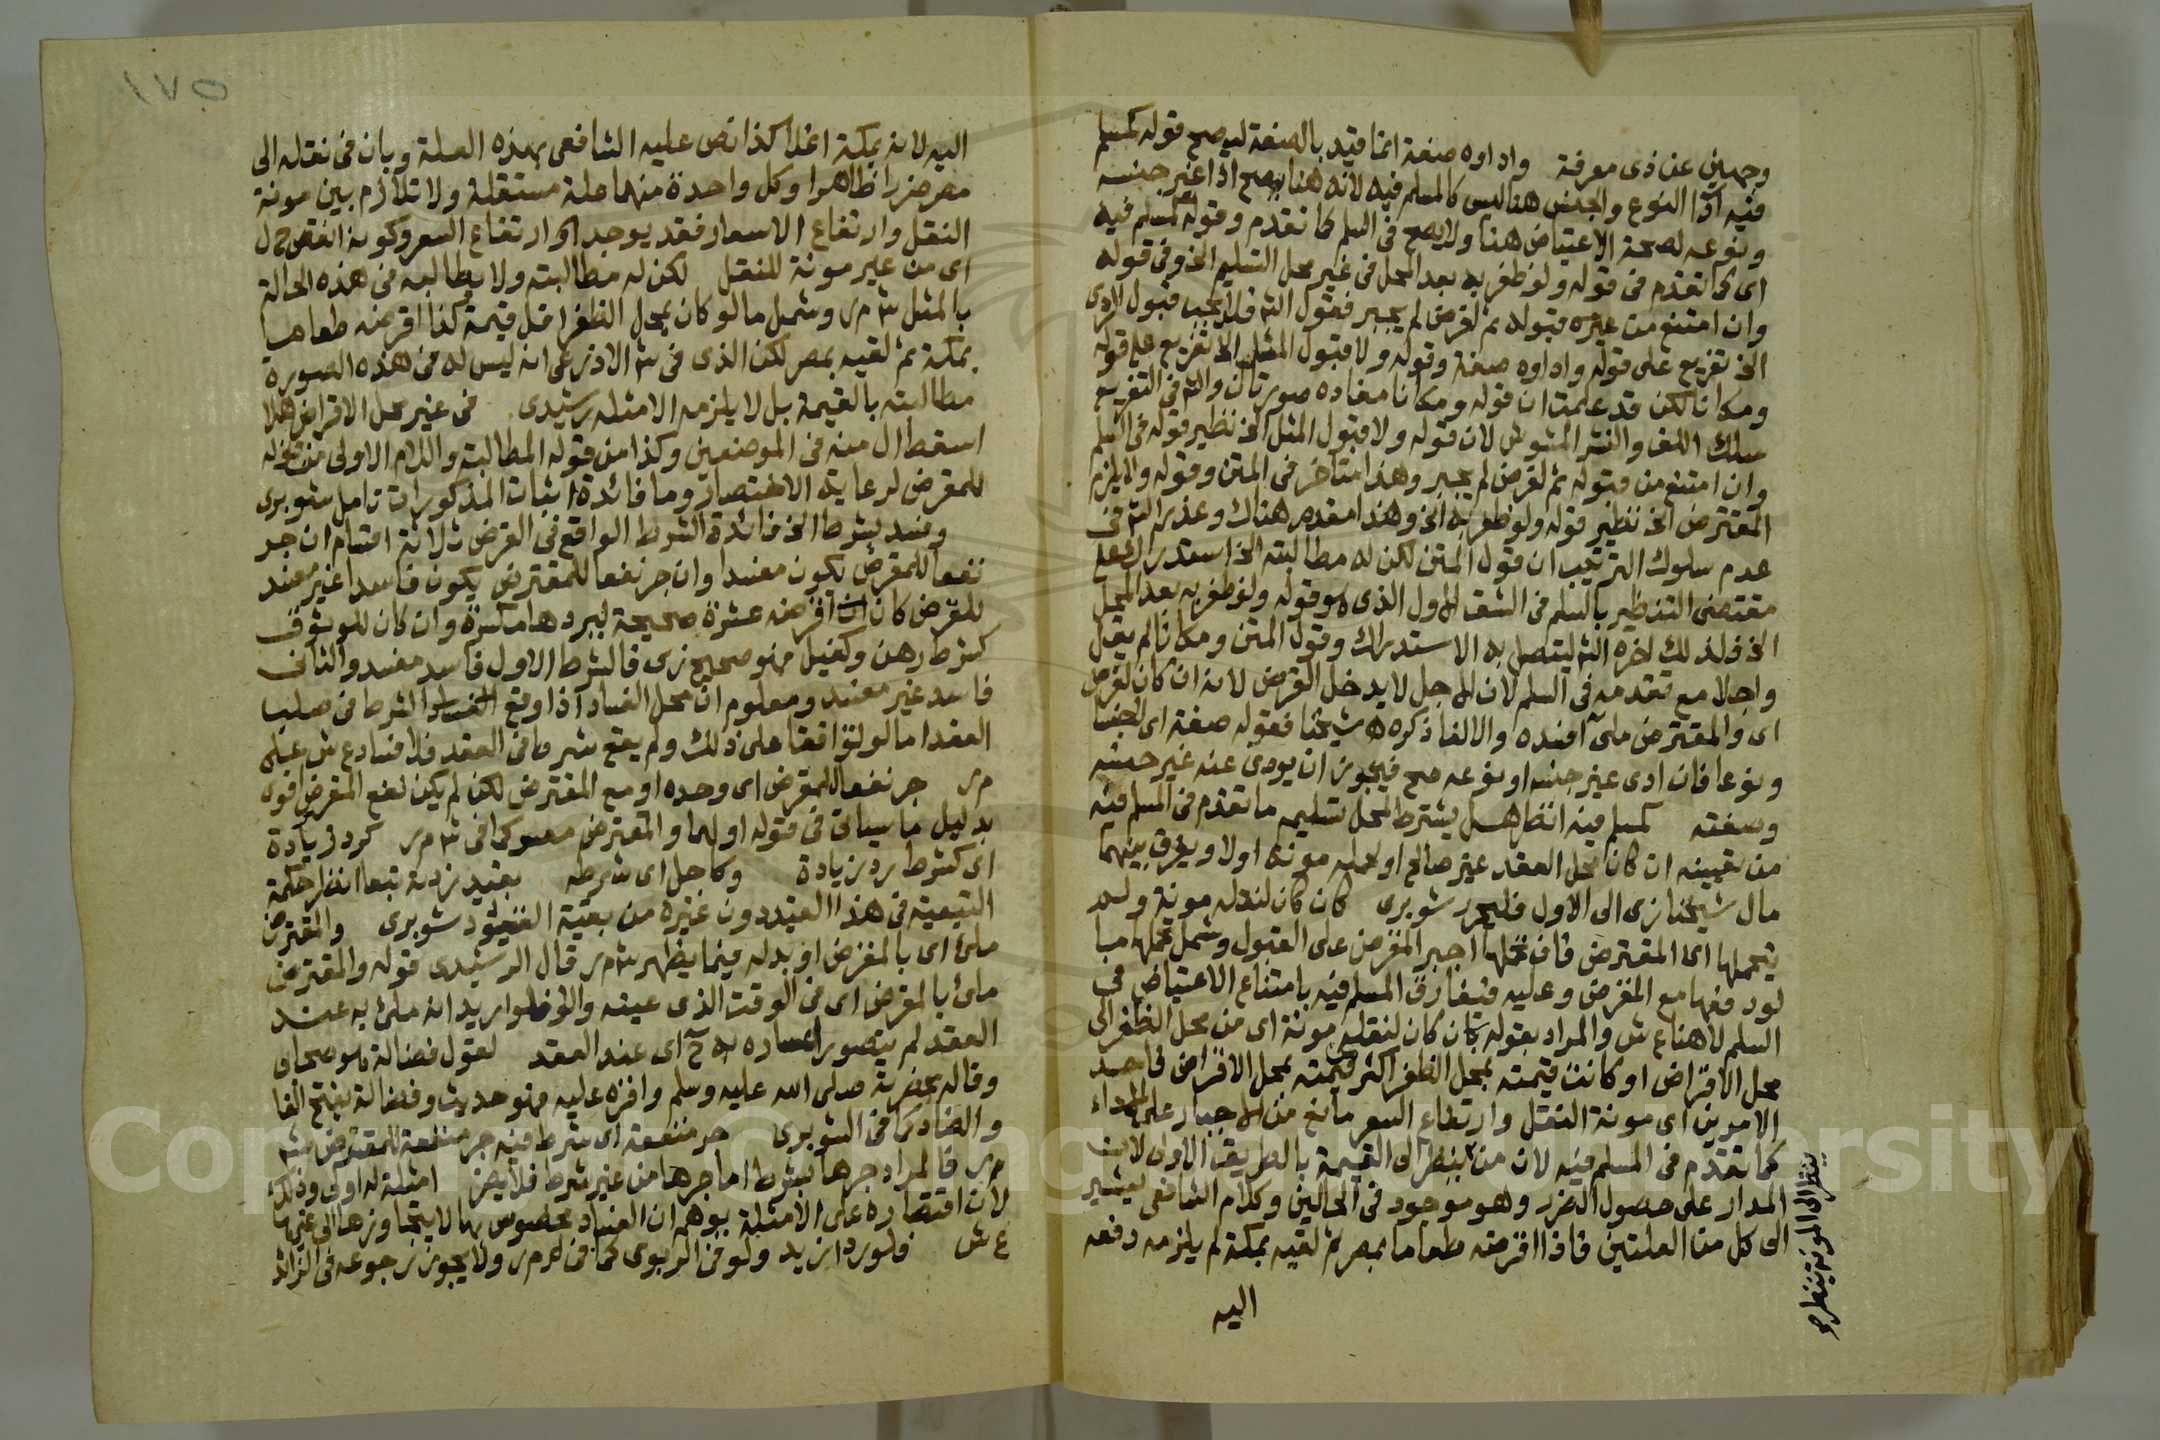 وجهين عن ذى معرفة واداوه صفة انما قيد بالصفة ليصح قوله كمسلم
فيه اذا النوع والجنس هنا ليس كالمسلم فيه لانه هنا يصح اذا غير جنسه
ونوعه لصحة الاعتياض هنا ولا يصح فى السلم كما تقدم وقوله كمسلم فيه
اى كما تقدم فى قوله ولو ظفر به بعد المحل فى غير محل التسليم الخ وفى قوله
وان امتنع من قبوله ثم لغرض لم يجبر فقول الش فلا يجب قبول الردى
الخ تفريع على قوله واداوه صفة وقوله ولا قبول المثل الخ تفريع على قوله
ومكانا لكن قد علمت ان قوله ومكانا مفاده صورتان والش فى التفريع
سلك اللف والنشر المشوش لان قوله ولا قبول المثل الخ نظير قوله فى السلم
وان امتنع من قبوله ثم لغرض لم يجبر وهذا متاخر فى المتن وقوله ولا يلزم
المقترض الخ نظير قوله ولو ظفر به الخ وهذا مقدم هناك وعذر الش فى
عدم سلوك الترتيب ان قول المتن لكن له مطالبته الخ استدراك على
مقتضى التنظير بالسلم فى الشق الاول الذى هو قوله ولو ظفر به بعد المحل
الخ فلذلك اخره الش ليتصل به الاستدراك وقول المتن ومكانا لم يقل
واجلا مع تقدمه فى السلم لان الاجل لا يدخل القرض لانه ان كان لغرض
اى والمقترض ملئ افسده والا لغا ذكره شيخنا فقوله صفة اى لاجنسا
ونوعا فان ادى غير جنسه او نوعه صح فيجوز ان يودى عنه غير جنسه
وصفته كمسلم فيه انظر هل يشترط لمحل تسليمه ما تقدم فى المسلم فيه
من تعيينه ان كان محل العقد غير صالح او لحمله مونة اولا ويفرق بينهما
مال شيخنا زى الى الاول فليحرر شوبرى كان كان لنقله مونة ولم
يتحملها اى المقترض فان تحملها اجبر المقرض على القبول وشمل تحملها ما
لو دفعها مع المقرض وعليه فيفارق المسلم فيه بامتناع الاعتياض فى
السلم لا هنا ع ش والمراد بقوله بان كان لنقله مونة اى من محل الظفر الى
محل الاقراض او كانت قيمته بمحل الظفر اكثر قيمته بمحل الاقراض فاحد
الامرين اى مونة النقل وارتفاع السعر مانع من الاجبار على الاداء
كما تقدم فى المسلم فيه لان من ينظر الى القيمة بالطريق الاولى لان
المدار على حصول الضرر وهو موجود فى الحالين وكلام الشافعى يشير
الى كل من العلتين فاذا اقرضه طعاما بمصر ثم لقيه بمكة لم يلزمه دفعه
اليه
ينظر الى المونة ينظر صح
١٧٥
اليه لانه بمكة اغلا كذا نص عليه الشافعى بهذه العلة وبان فى نقله الى
مصر ضررا ظاهرا وكل واحدة منهما علة مستقلة ولا تلازم بين مونة
النقل وارتفاع الاسعار فقد يوجد
اى من غير مونة للنقل لكن له مطالبته ولا يطالبه فى هذه الحالة
بالمثل ش م ر وشمل ما لو كان بمحل الظفر اقل قيمة كذا اقرضه طعاما
بمكة ثم لقيه بمصر لكن الذى فى ش الاذرعى انه ليس له فى هذه الصورة
مطالبته بالقيمة بل لا يلزمه الا مثله رشيدى فى غير محل الاقراض هلا
اسقط ال منه فى الموضعين وكذا من قوله المطالبة واللام الاولى من قوله
للمقرض لرعاية الاختصار وما فائدة اثبات المذكورات تامل شوبرى
وفسد بشرط الخ فائدة الشرط الواقع فى القرض ثلاثة اقسام ان جر
نفعا للمقرض يكون مفسدا وان جر نفعا للمقترض يكون فاسدا غير مفسد
للقرض كان اقرضه عشرة صحيحة ليردها مكسرة وان كان للوثوق
كشرط رهن وكفيل فهو صحيح زى فالشرط الاول فاسد مفسد والثانى
فاسد غير مفسد ومعلوم ان محل الفساد اذا وقع الشرط فى صلب
العقد اما لو توافقا على ذلك ولم يقع شرط فى العقد فلا فساد ع ش على
م ر جر نفعا للمقرض اى وحده او مع المقترض لكن لم يكن نفع المقرض اقوى
بدليل ما سياتى فى قوله اولهما والمقترض معسر كما فى ش م ر كرد زيادة
اى كشرط رد زيادة وكاجل اى شرطه بقيد زدته تبعا انظر حكمة
التبعية فى هذا القيد دون غيره من بقية القيود شوبرى والمقترض
ملئ اى بالمقرض او بدله فيما يظهر ش م ر قال الرشيدى قوله والمقترض
ملئ بالمقرض اى فى الوقت الذى عينه والا فلو اريد انه ملئ به عند
العقد لم يتصور اعساره به ح اى عند العقد لقول فضالة هو صحابى
وقاله بحضرته صلى الله عليه وسلم واقره عليه فهو حديث وفضالة بفتح الفا
والضاد كما فى الشوبرى جر منفعة اى شرط فيه جر منفعة للمقرض ش
م ر فالمراد جرها بشرط اما جرها من غير شرط فلا يضر امثلة له اولى وذلك
لان اقتصاره على الامثلة يوهم ان الفساد مخصوص بها لا يتجاوزها الى غيرها
ع ش فلو رد ازيد ولو فى الربوى كما فى م ر ولا يجوز رجوعه فى الزائد